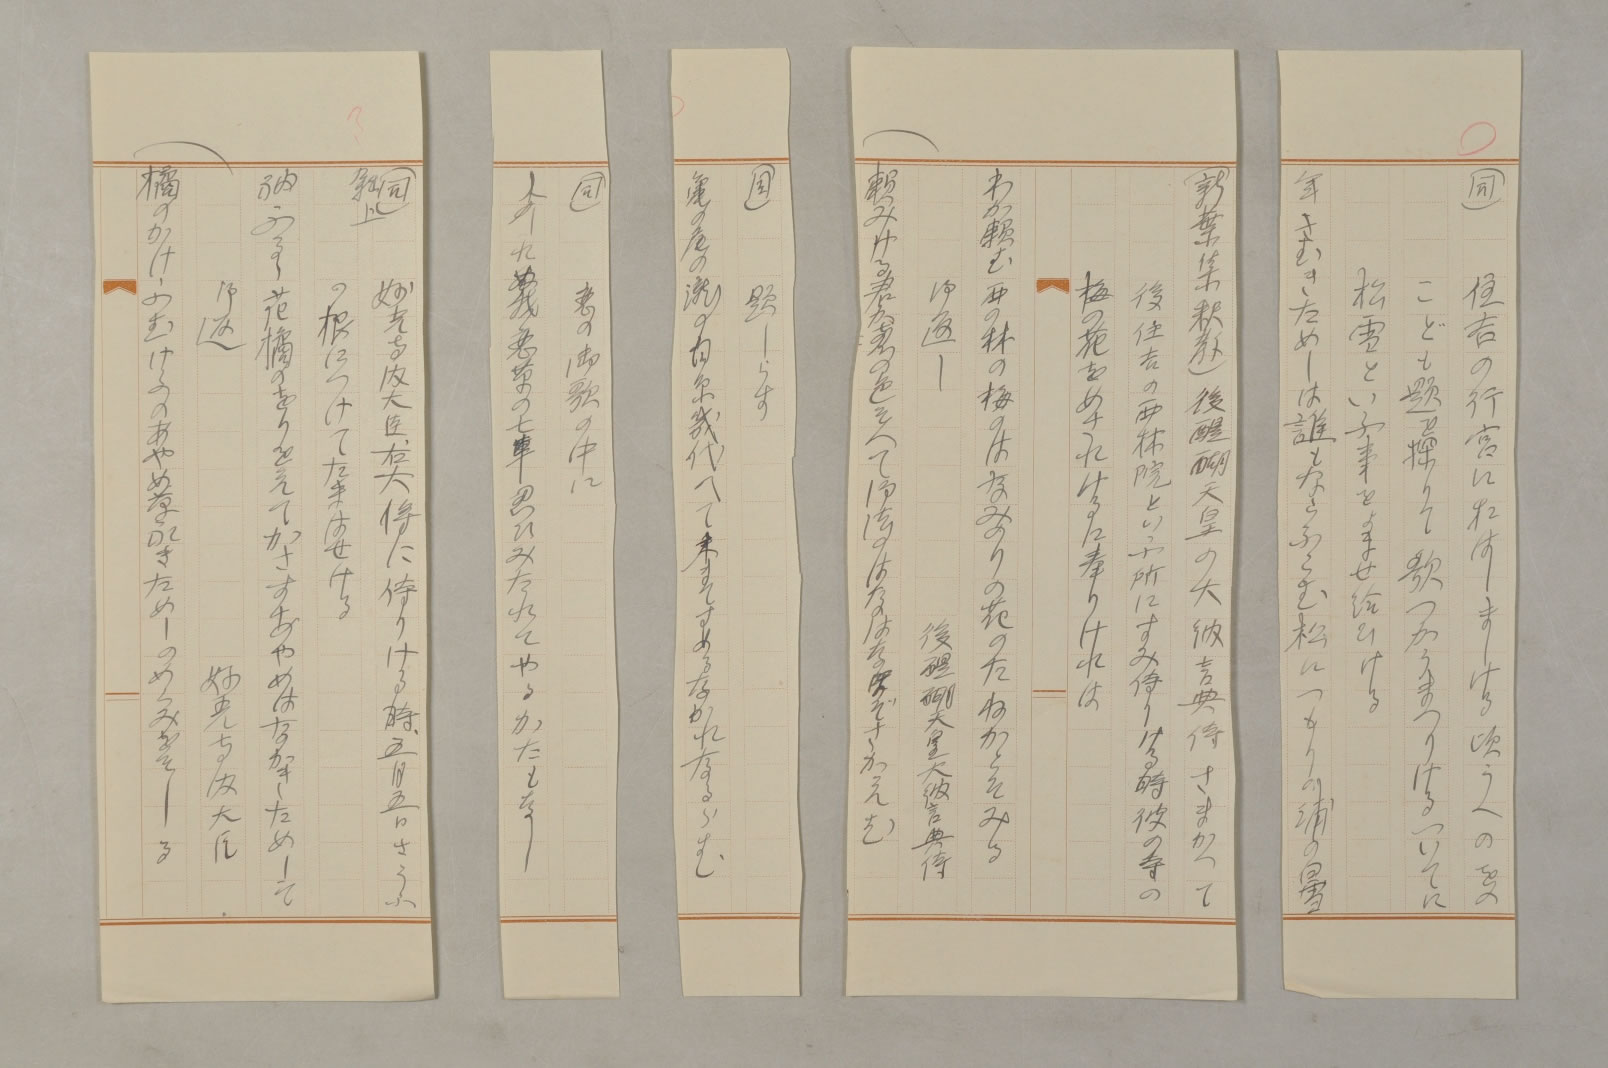 同
住吉の行宮におはしましける頃うへのをのこども題を探りて歌つかうまつりけるついてに
松雪といふ事をよませ給ひける
年さむきためしは誰もならふらむ松につもりの浦の白雪
(新葉集釈教)後醍醐天皇の大納言典侍さまかへて
後住吉の西林院といふ所にすみ侍りける時彼の寺の
梅の花をめされけるに奉りけれは
わか頼む西の林の梅のはなみのりの花のたねかとそみる
御返し
後醍醐天皇大納言典侍
頼みける君か恵の色そへて御法のはなの
同
題しらす
亀の尾の瀧の白糸幾代へて
なかれなるらむ
同
恋の御歌の中に
恋草の七車思ひみたれてやるかたもなし
同
雑上
妙光寺内大臣右大将に侍りける時、五月五日さうふ
の根につけてたまはせける
花橘のをりをえてかさすあやめはなかきためしそ
御返
妙光寺内大臣
橘のかけふむけふのあやめ草
ためしのめくみをそしる